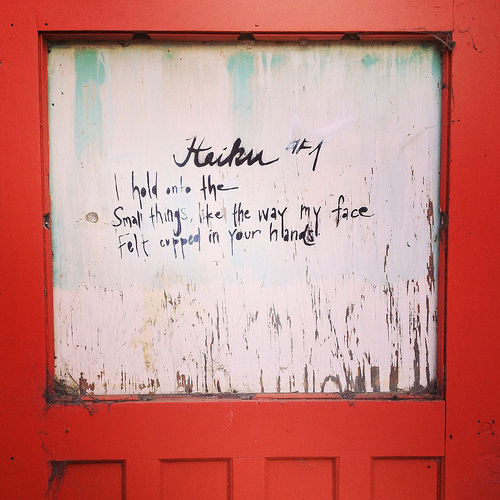 Haiku #1
I hold onto the
Small things, like the way my face
Felt cupped in your hands